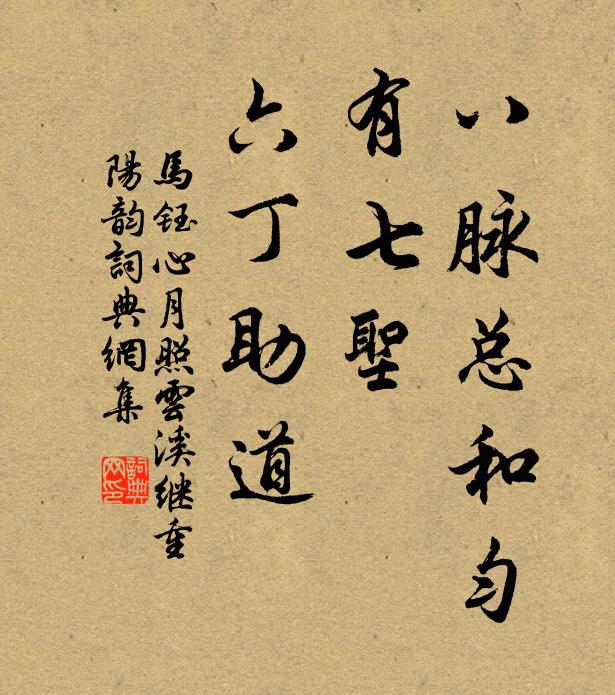 八脉总和匀
有七聖
六丁助道
馬鈺心月照雲溪继重
陽韵詞典網集
詞典网印